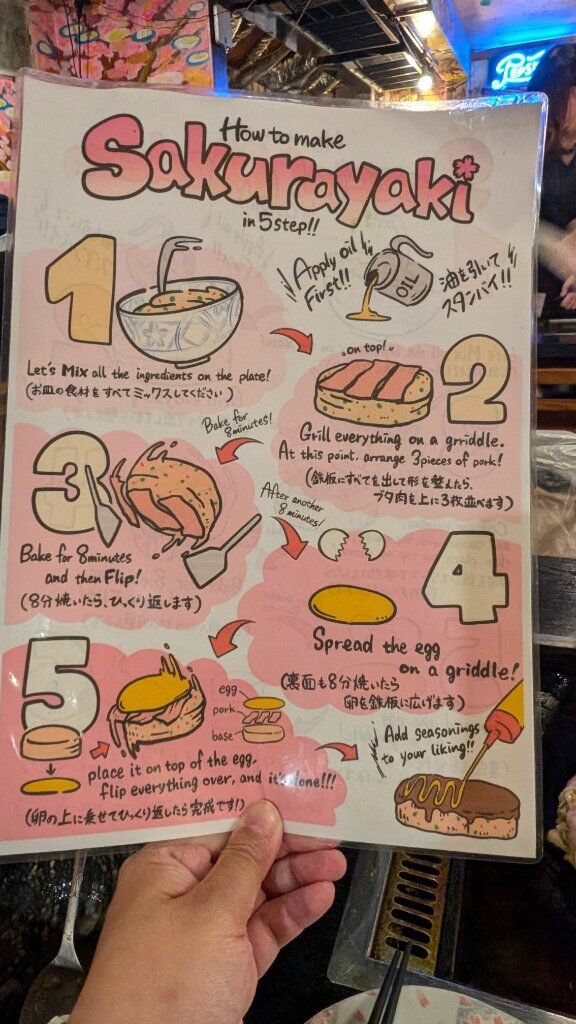 How to make
Sakurayaki
in 5step!!
1
Let's Mix all the ingredients on the plate!
(お皿の食材をすべてミックスしてください)
Apply oil
First!!
OIL
油を引いて
スタンバイ!!
on top!
2
Grill everything on a griddle.
At this point, arrange 3 pieces of pork!
(鉄板にすべてを出して形を整えたら、
ブタ肉を上に3枚並べます)
Bake for
8minutes!
3
Bake for 8minutes
and then Flip!
(8分焼いたら、ひっくり返します)
After another
8 minutes!
4
Spread the egg
on a griddle!
(裏面も8分焼いたら
卵を鉄板に広げます)
5
egg
pork
base
place it on top of the egg,
flip everything over, and it's done!!!
(卵の上に乗せてひっくり返したら完成です!)
Add seasonings
to your liking!!